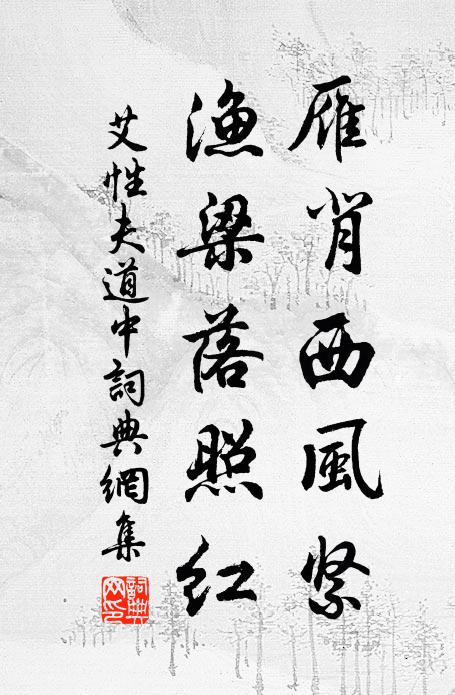 雁背西風緊
漁梁落照紅
艾性夫道中詞典網集
詞典
网印